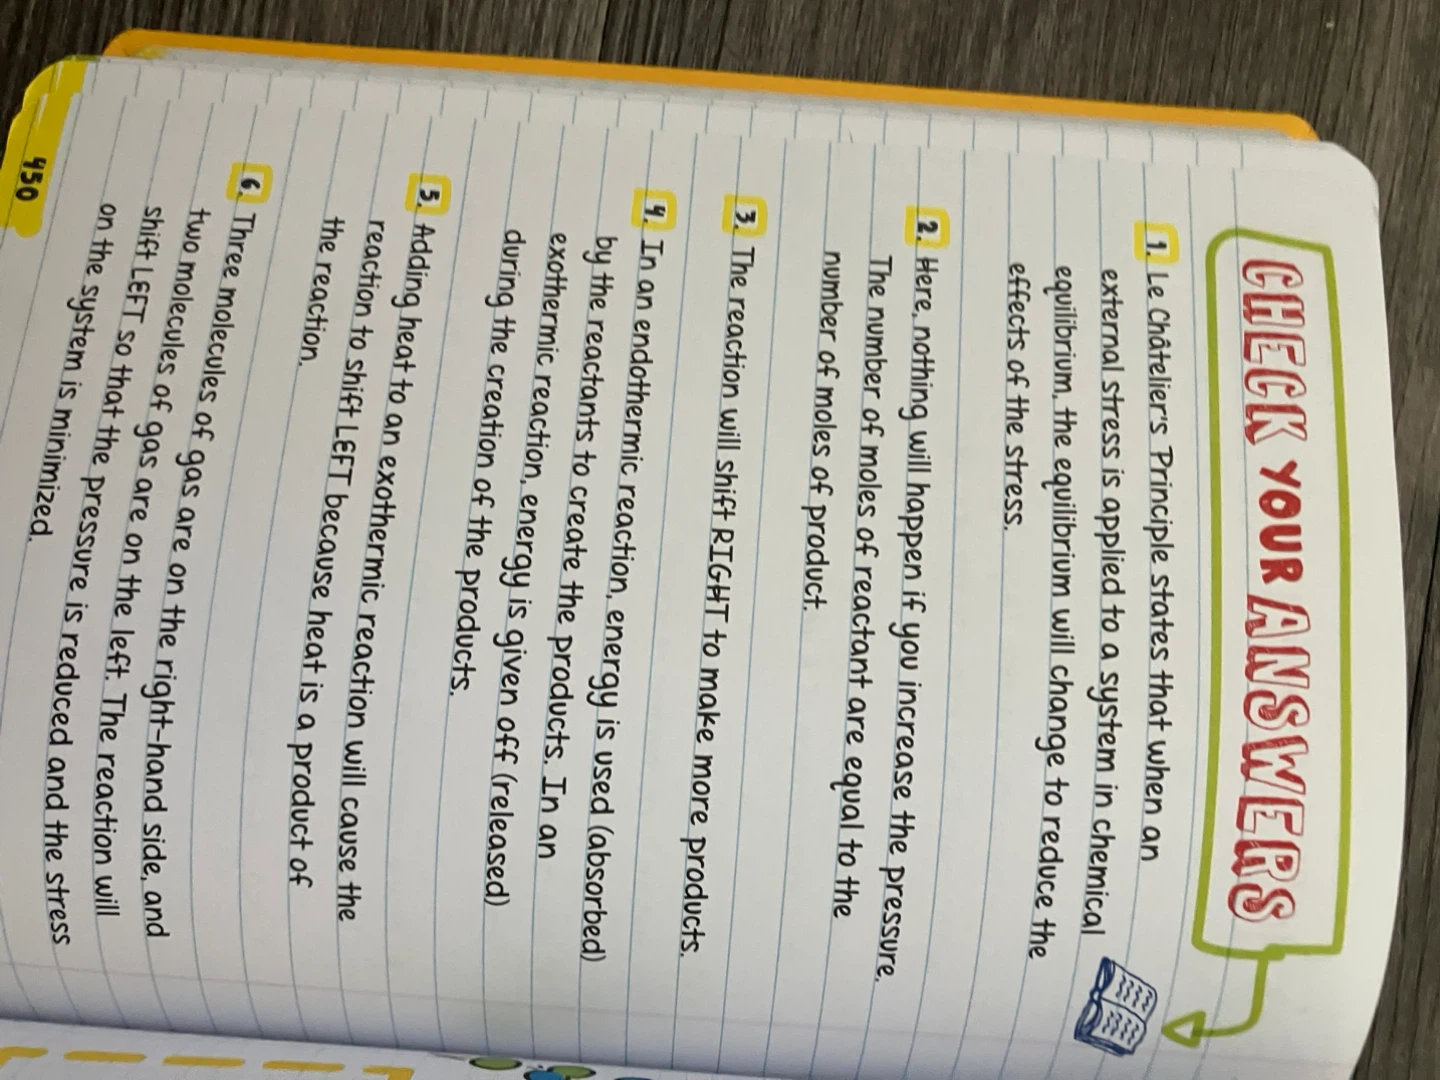 CHECK YOUR ANSWERS
1. Le Châtelier's Principle states that when an
external stress is applied to a system in chemical
equilibrium, the equilibrium will change to reduce the
effects of the stress.
2. Here, nothing will happen if you increase the pressure.
The number of moles of reactant are equal to the
number of moles of product.
3. The reaction will shift RIGHT to make more products.
4. In an endothermic reaction, energy is used (absorbed)
by the reactants to create the products. In an
exothermic reaction, energy is given off (released)
during the creation of the products.
5. Adding heat to an exothermic reaction will cause the
reaction to shift LEFT because heat is a product of
the reaction.
6. Three molecules of gas are on the right-hand side, and
two molecules of gas are on the left. The reaction will
shift LEFT so that the pressure is reduced and the stress
on the system is minimized.
450